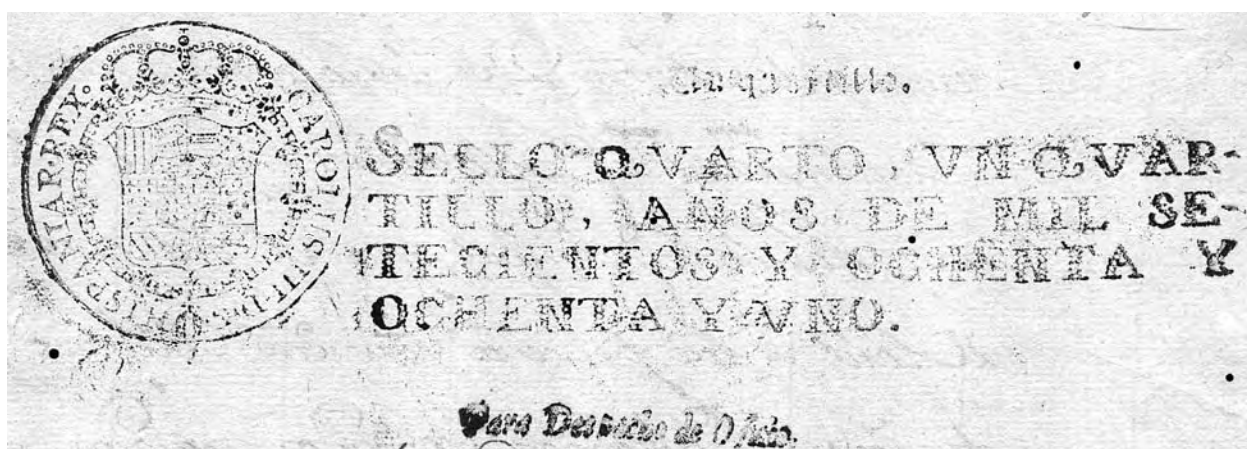 CAROLUS III·D·G·HISPANIAR·REX·
Un quartillo.
SELLO QVARTO, VN QVAR-
TILLO, AÑOS DE MIL SE-
TECIENTOS Y OCHENTA Y
OCHENTA Y VNO.
Para Despacho de Oficio.